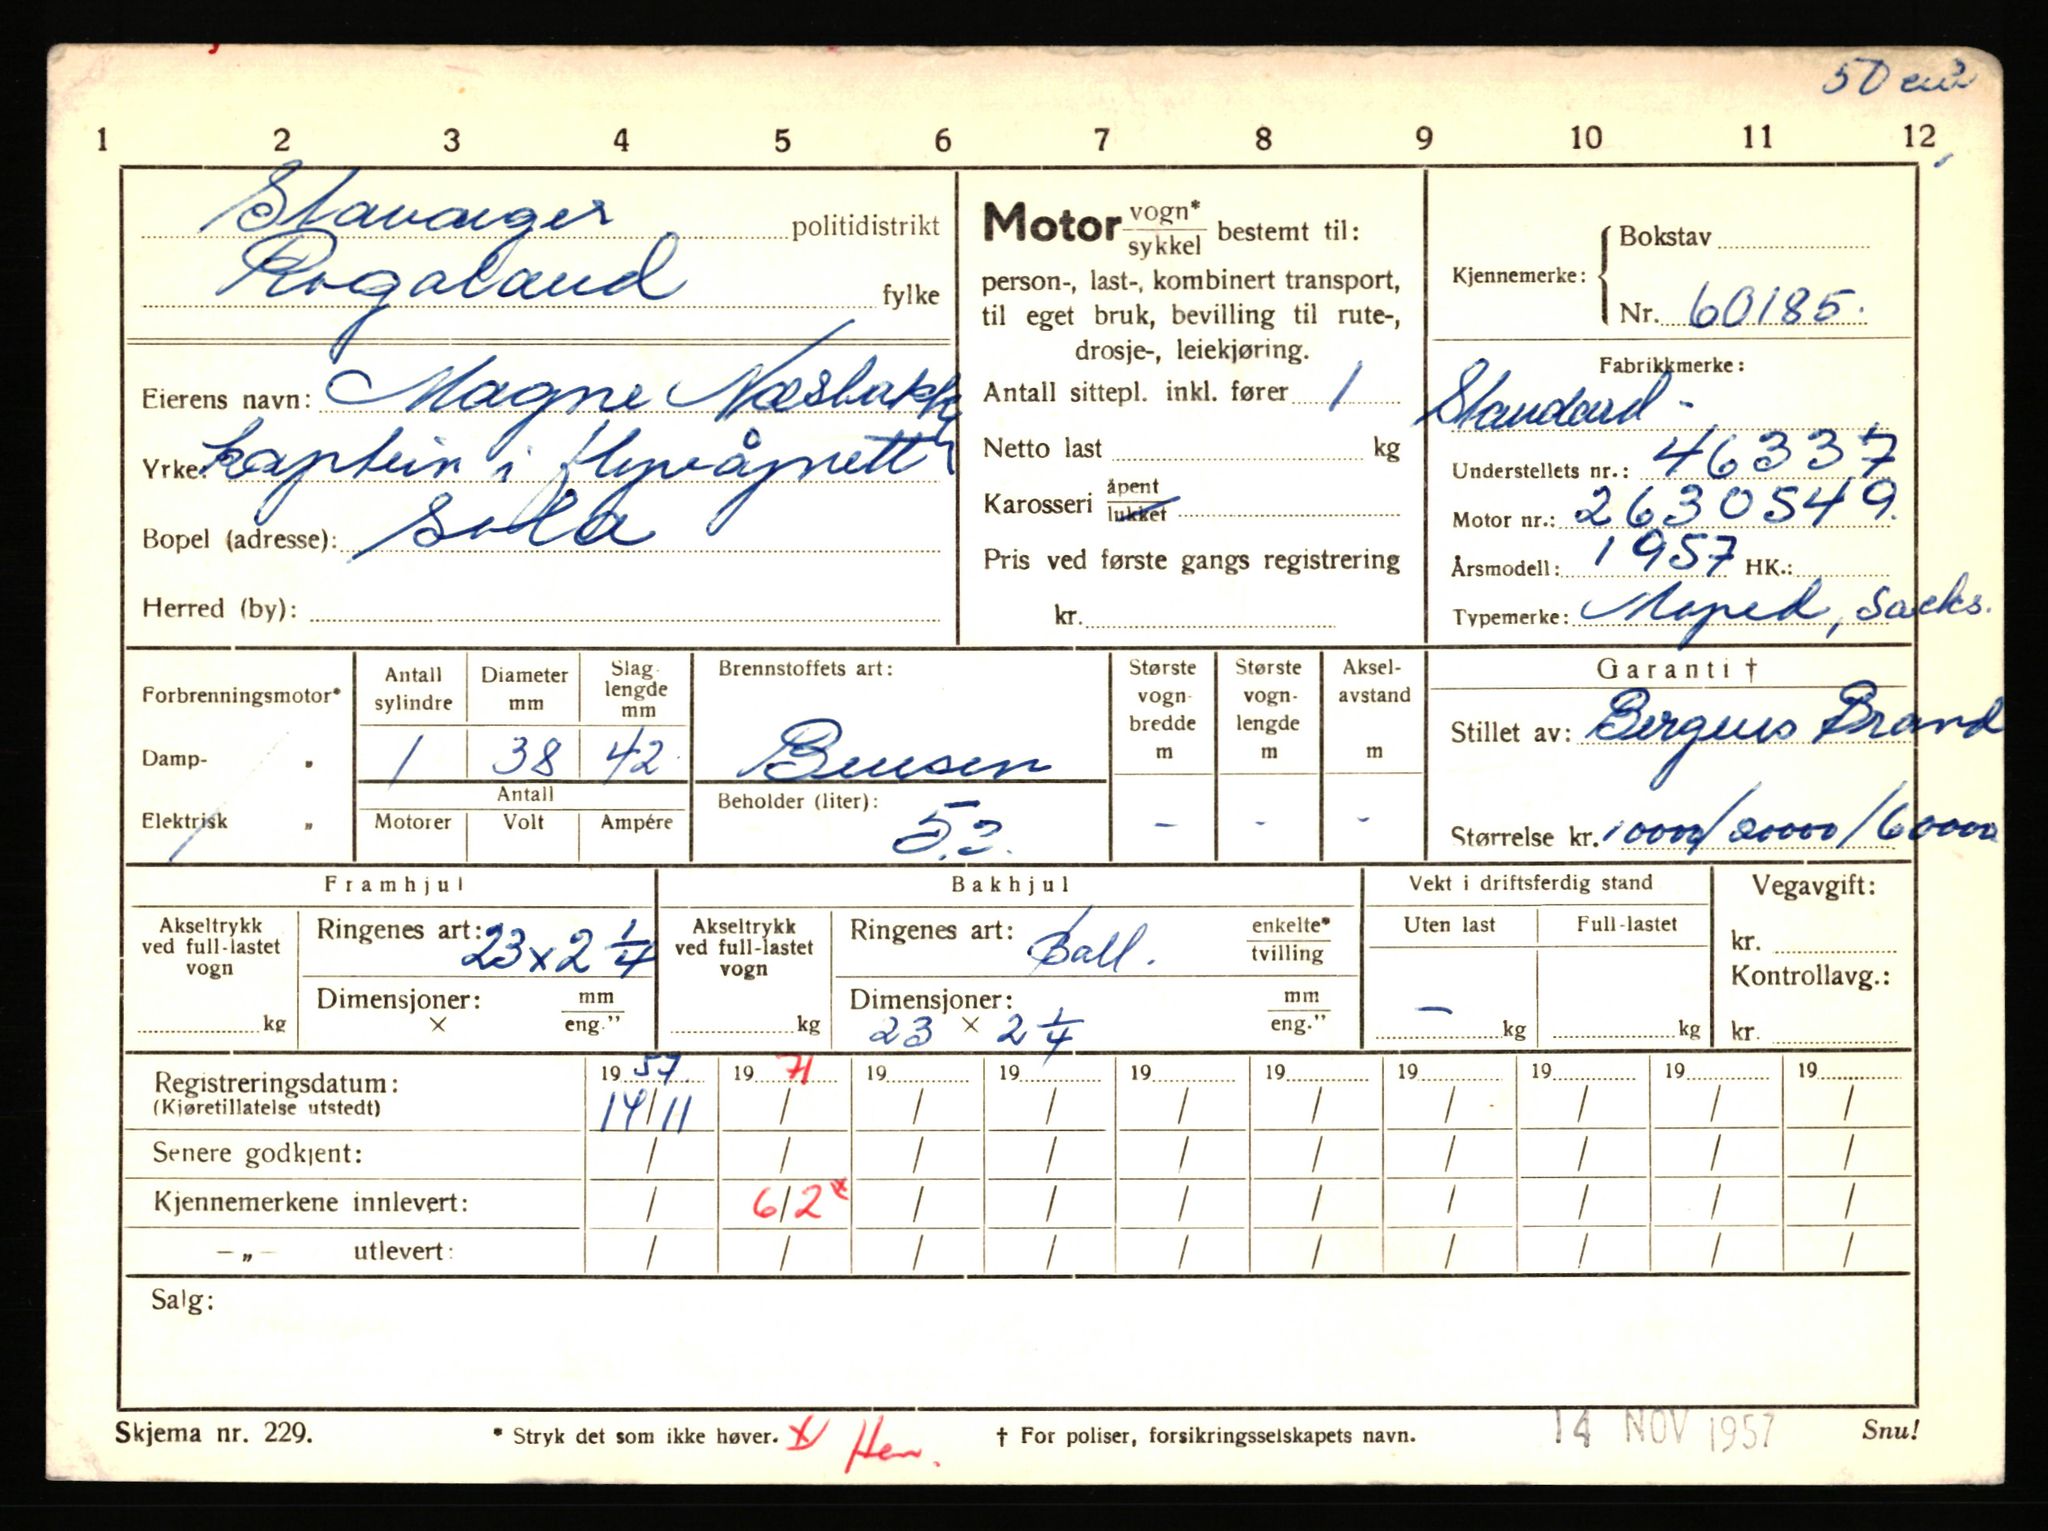 50 cm³
1 2 3 4 5 6 7 8 9 10 11 12
Stavanger politidistrikt
Rogaland fylke
Eierens navn: Magne Næsbakk
Yrke: kaptein i flyvåpnett
Bopel (adresse): Sola
Herred (by):
Motor vogn* / sykkel bestemt til:
person-, last-, kombinert transport,
til eget bruk, bevilling til rute-,
drosje-, leiekjøring.
Antall sittepl. inkl. fører 1
Netto last kg
Karosseri åpent / lukket
Pris ved første gangs registrering
kr.
Kjennemerke: Bokstav
Nr. 60185.
Fabrikkmerke:
Standard -
Understellets nr.: 46337
Motor nr.: 2630549.
Årsmodell: 1957 HK.:
Typemerke: Moped, Sacks.
Forbrenningsmotor*
Damp- "
Elektrisk "
Antall sylindre 1
Diameter mm 38
Slag-lengde mm 42
Antall
Motorer Volt Ampére
Brennstoffets art:
Bensin
Beholder (liter):
5.2.
Største vogn-bredde m -
Største vogn-lengde m -
Aksel-avstand m -
Garanti †
Stillet av: Bergens Brand
Størrelse kr. 10000/20000/60000
Framhjul
Akseltrykk ved full-lastet vogn kg
Ringenes art: 23 x 2 1/4
Dimensjoner: × mm / eng."
Bakhjul
Akseltrykk ved full-lastet vogn kg
Ringenes art: Ball. enkelte* / tvilling
Dimensjoner: 23 × 2 1/4 mm / eng."
Vekt i driftsferdig stand
Uten last Full-lastet
- kg kg
Vegavgift:
kr.
Kontrollavg.:
kr.
Registreringsdatum: 19 57. 19 71 19 19 19 19 19 19 19 19
(Kjøretillatelse utstedt) 14/11 / / / / / / / / /
Senere godkjent: / / / / / / / / / /
Kjennemerkene innlevert: / 6/2 x / / / / / / / /
— „ — utlevert: / / / / / / / / / /
Salg:
Skjema nr. 229. * Stryk det som ikke høver. x) Hen. † For poliser, forsikringsselskapets navn. 14 NOV 1957 Snu!